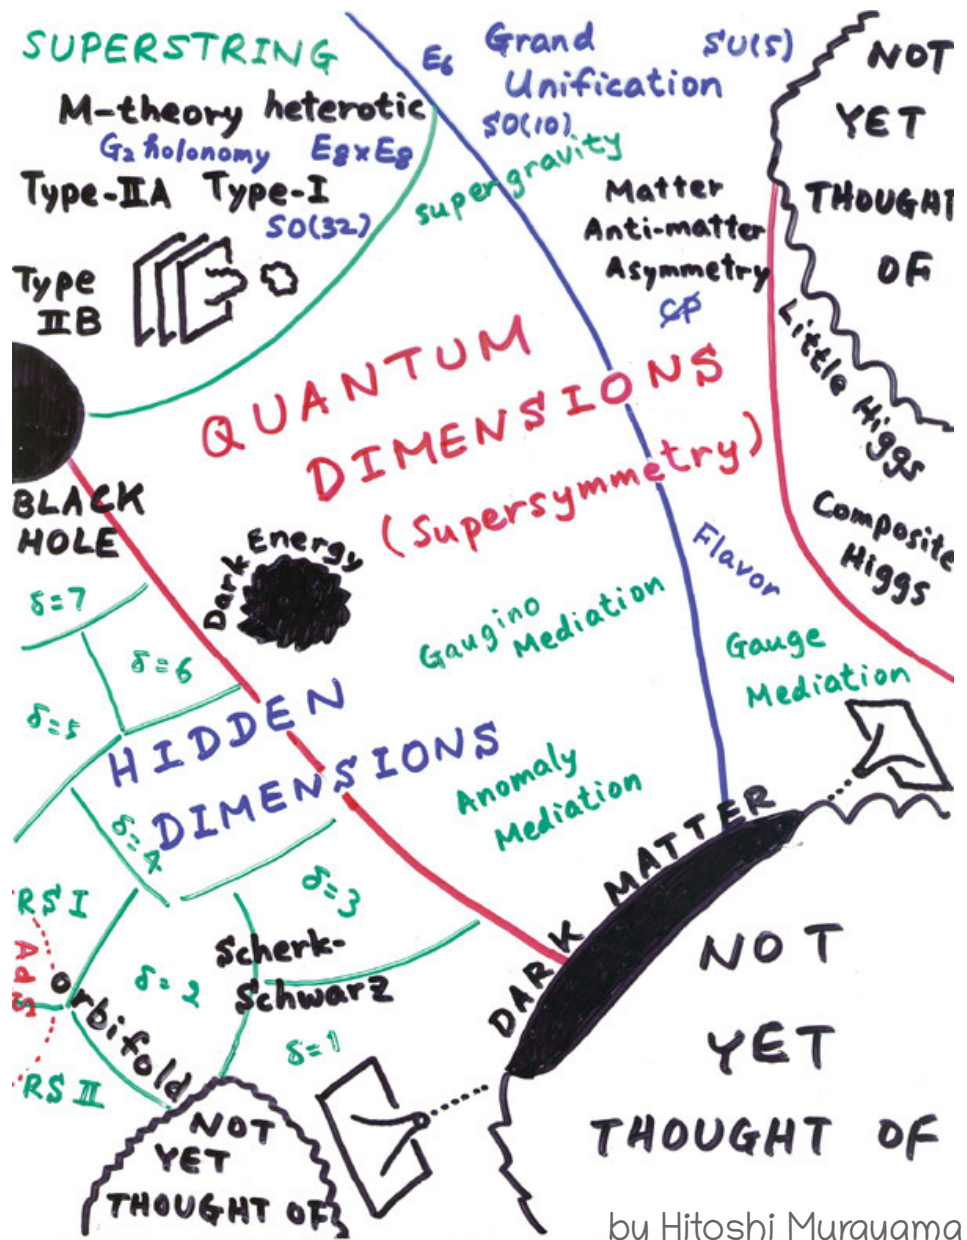 SUPERSTRING
M-theory heterotic
G₂ holonomy E₈×E₈
Type-ⅡA Type-I
SO(32)
Type
ⅡB
E₆
Grand
Unification
SU(5)
SO(10)
supergravity
Matter
Anti-matter
Asymmetry
CP
NOT
YET
THOUGHT
OF
Little Higgs
Composite
Higgs
QUANTUM
DIMENSIONS
(Supersymmetry)
BLACK
HOLE
Dark Energy
Flavor
Gaugino
Mediation
Gauge
Mediation
Anomaly
Mediation
δ=7
δ=6
δ=5
HIDDEN
DIMENSIONS
δ=4
δ=3
RS I
AdS
RS Ⅱ
orbifold
δ=2
Scherk-
Schwarz
δ=1
DARK MATTER
NOT
YET
THOUGHT OF
NOT
YET
THOUGHT OF
by Hitoshi Murayama